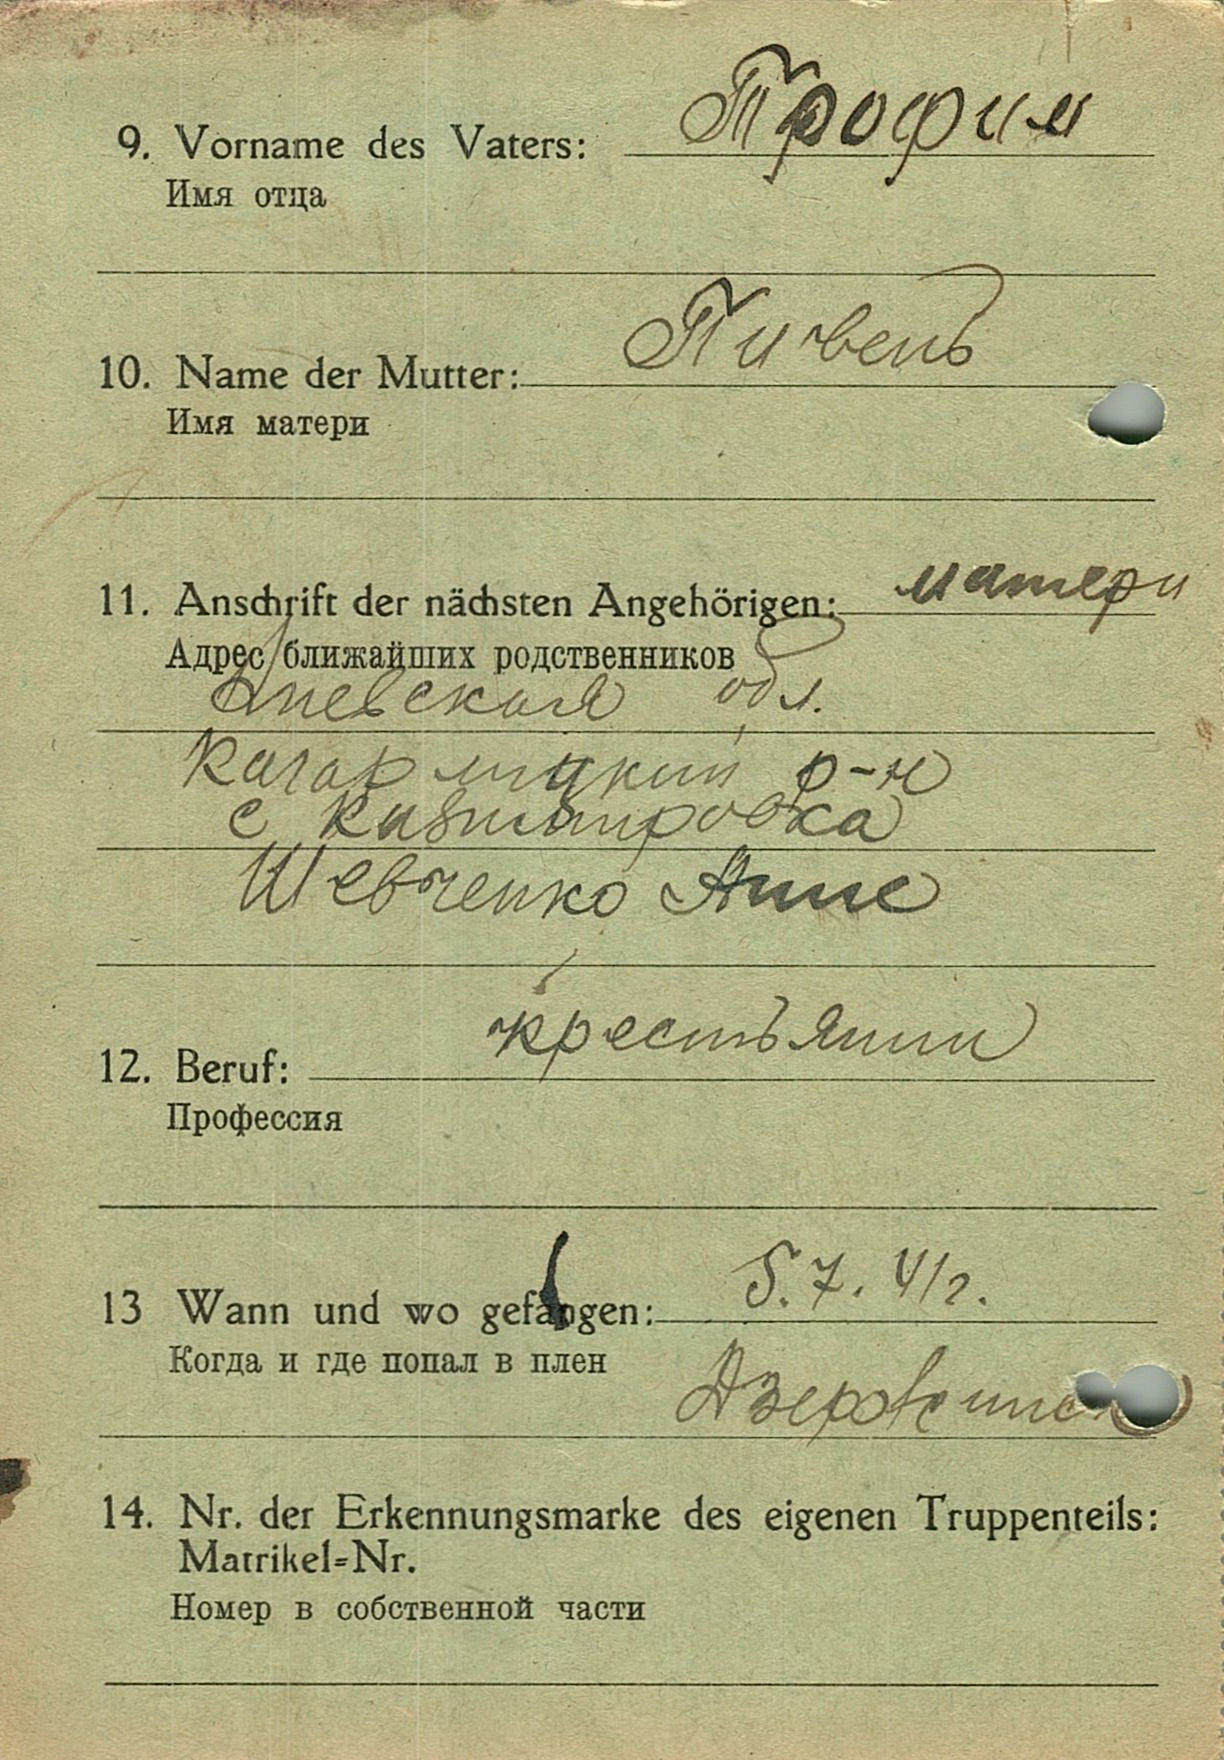 9. Vorname des Vaters: Трофим
Имя отца
10. Name der Mutter: Пивень
Имя матери
11. Anschrift der nächsten Angehörigen: матери
Адрес ближайших родственников
Киевская обл.
Кагарлицкий р-н
с Казимировка
Шевченко Анне
крестьянин
12. Beruf:
Профессия
13 Wann und wo gefangen: 5.7.42.
Когда и где попал в плен
14. Nr. der Erkennungsmarke des eigenen Truppenteils:
Matrikel=Nr.
Номер в собственной части